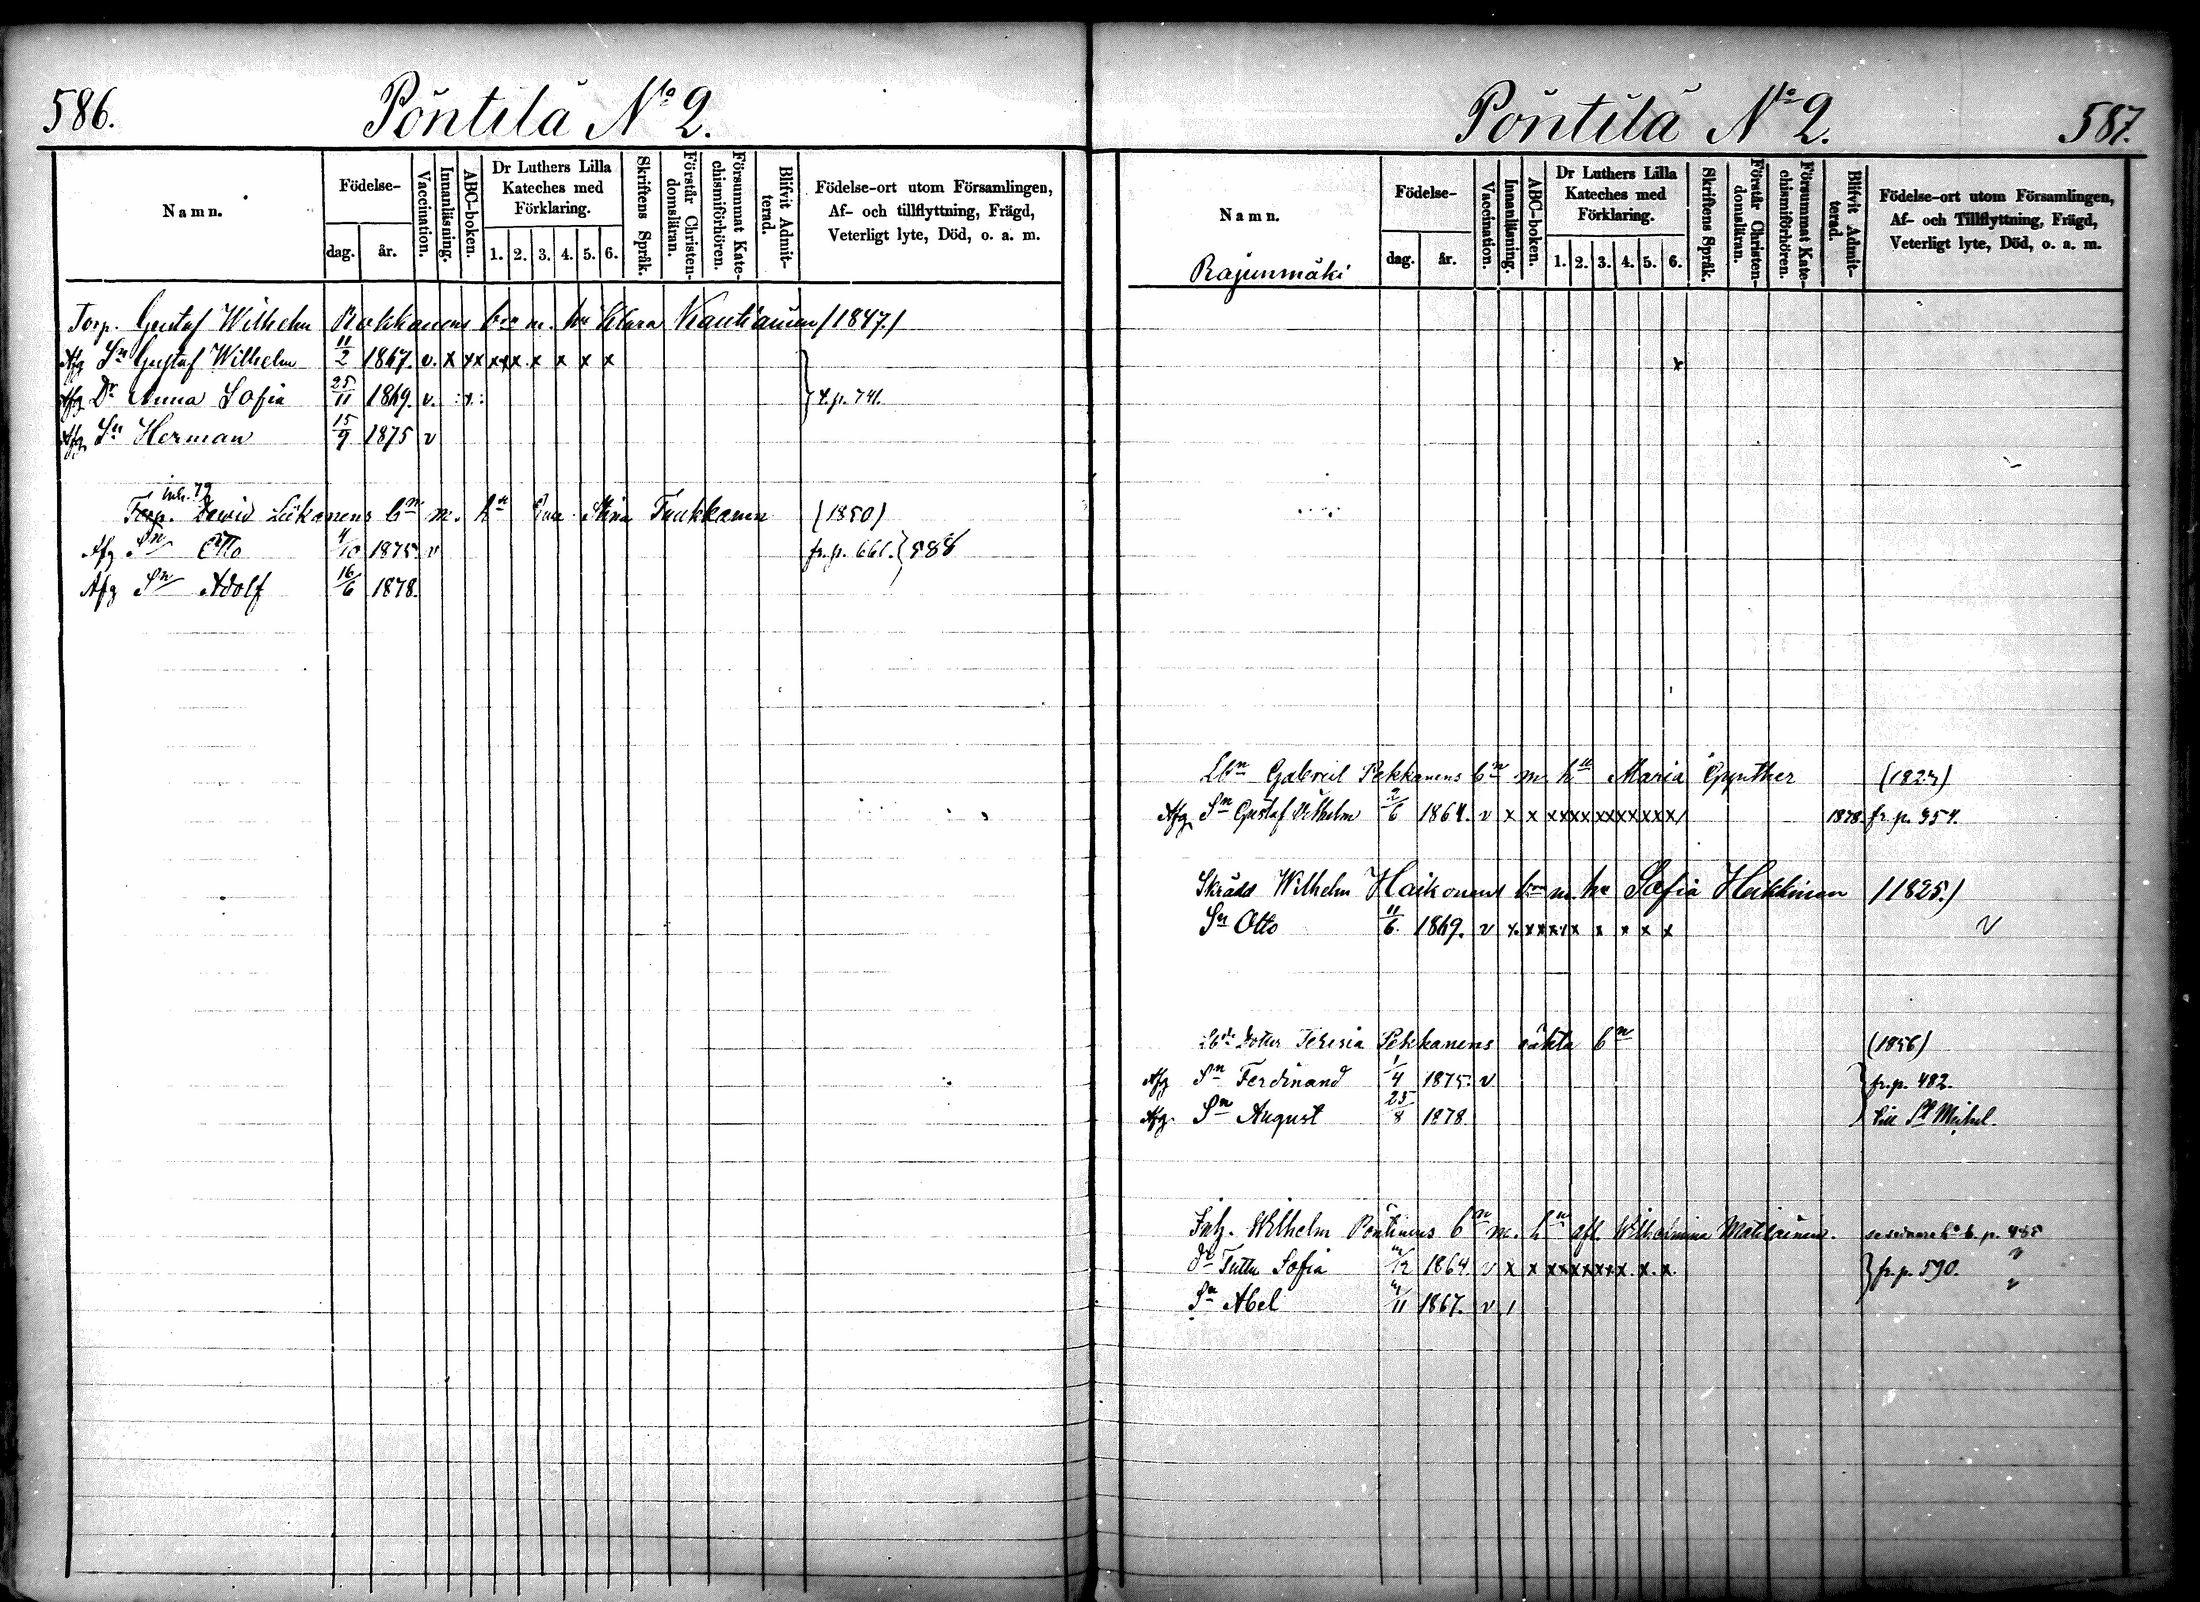 586.
Pöntilä No 2.
Namn.
Födelse-
dag.
år.
Vaccination.
Innanläsning.
ABC-boken.
Dr Luthers Lilla Kateches med Förklaring.
1. 2. 3. 4. 5. 6.
Skriftens Språk.
Förstår Christen-domsläran.
Försummat Kate-chismiförhören.
Blifvit Admit-terad.
Födelse-ort utom Församlingen,
Af- och tillflyttning, Frägd,
Veterligt lyte, Död, o. a. m.
Torp. Gustaf Wilhelm Rokkanens bn m. hu Klara Kautiainen (1847.)
Afg Sn Gustaf Wilhelm 11/2 1867. v. x xx xxx x x x x
Afg Dr Anna Sofia 25/11 1869. v. :x: f.p. 741.
Afg Sn Herman 15/9 1875 v
inh. 79
Torp. Dawid Liikanens bn m. hu Stina Tuukkanen (1850)
Afg Sn Otto 4/10 1875 v fr. p. 661. } 588
Afg Sn Adolf 16/6 1878.
Pöntilä No 2.
587.
Namn.
Rajunmäki
Födelse-
dag.
år.
Vaccination.
Innanläsning.
ABC-boken.
Dr Luthers Lilla Kateches med Förklaring.
1. 2. 3. 4. 5. 6.
Skriftens Språk.
Förstår Christen-domsläran.
Försummat Kate-chismiförhören.
Blifvit Admit-terad.
Födelse-ort utom Församlingen,
Af- och Tillflyttning, Frägd,
Veterligt lyte, Död, o. a. m.
x
Lbn Gabriel Pekkanens bn m. hu Maria Gynther
Afg Sn Gustaf Vilhelm 2/6 1864. v x x xxxxxxxxxxx/ 1878. fr. p. 354.
Skrädd Wilhelm Haikonens bn m. hu Sofia Heikkinen (1825.)
Sn Otto 11/6. 1869. v x xxxxx x x x x v
Dotter Teresia Pekkanens oäkta bn (1856)
Afg Sn Ferdinand 1/4 1875. v fr. p. 482.
Afg. Sn August 25/8 1878 till St Mickel.
Inh. Wilhelm Pöntinens bn m. hu afl. Wilhelmina Matilainen. p. 485
dr Sofia /12 1864 v x x xxxxxxx x. x. fr. p. 590. v
Sn Abel /11 1867. v / v